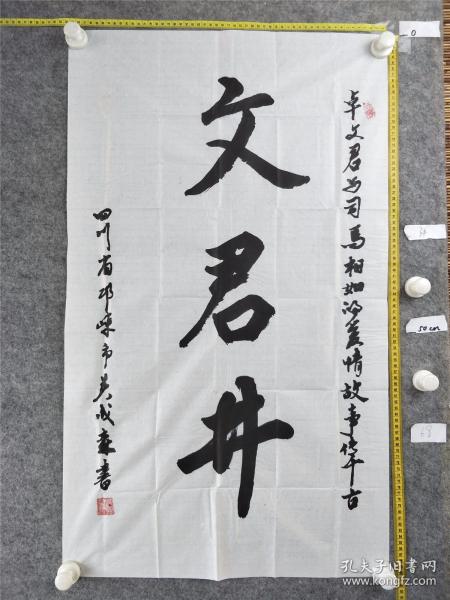 卓文君与司马相如的爱情故事传千古
文君井
四川省邛崃市吴成森书
0
50cm
68
孔夫子旧书网
www.kongfz.com